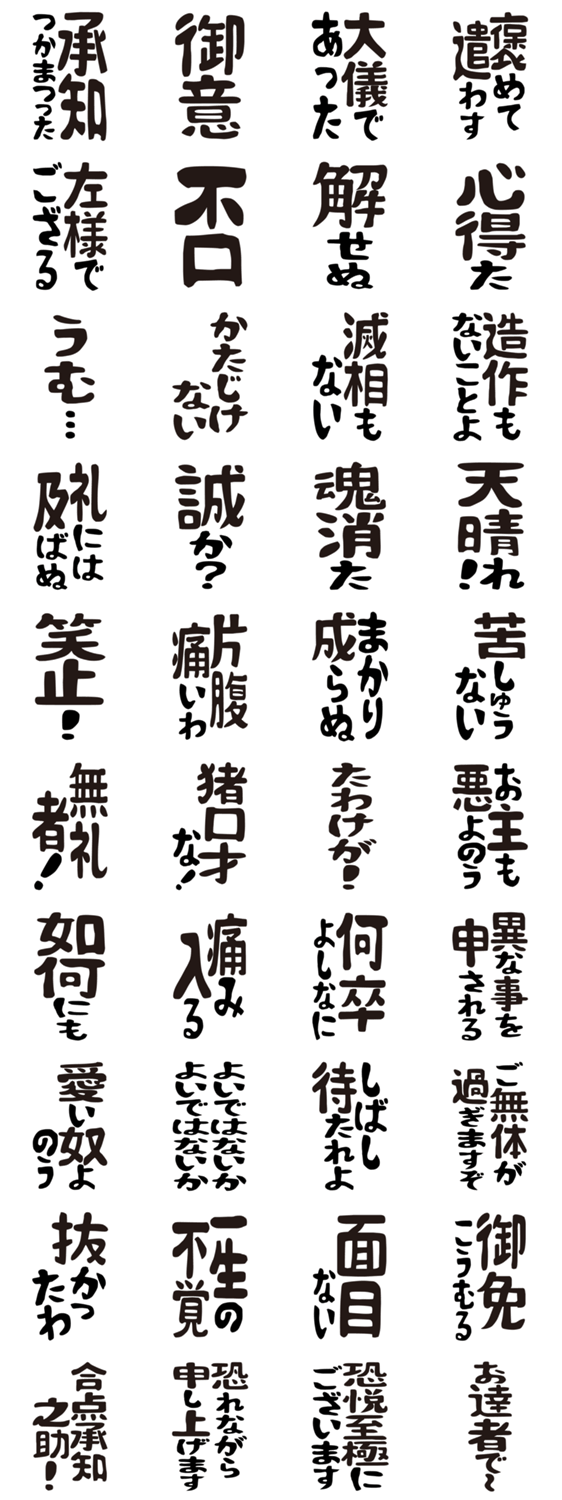 承知
つかまつった
御意
大儀で
あった
褒めて
遣わす
左様で
ござる
不口
解せぬ
心得た
うむ…
かたじけ
ない
滅相も
ない
造作も
ないことよ
礼には
及ばぬ
誠か?
魂消た
天晴れ!
笑止!
片腹
痛いわ
まかり
成らぬ
苦しゅう
ない
無礼
者!
猪口才
な!
たわけが!
お主も
悪よのう
如何にも
痛み
入る
何卒
よしなに
異な事を
申される
愛い奴よ
のう
よいではないか
よいではないか
しばし
待たれよ
ご無体が
過ぎますぞ
抜かっ
たわ
一生の
不覚
面目
ない
御免
こうむる
合点承知
之助!
恐れながら
申し上げます
恐悦至極に
ございます
お達者で~